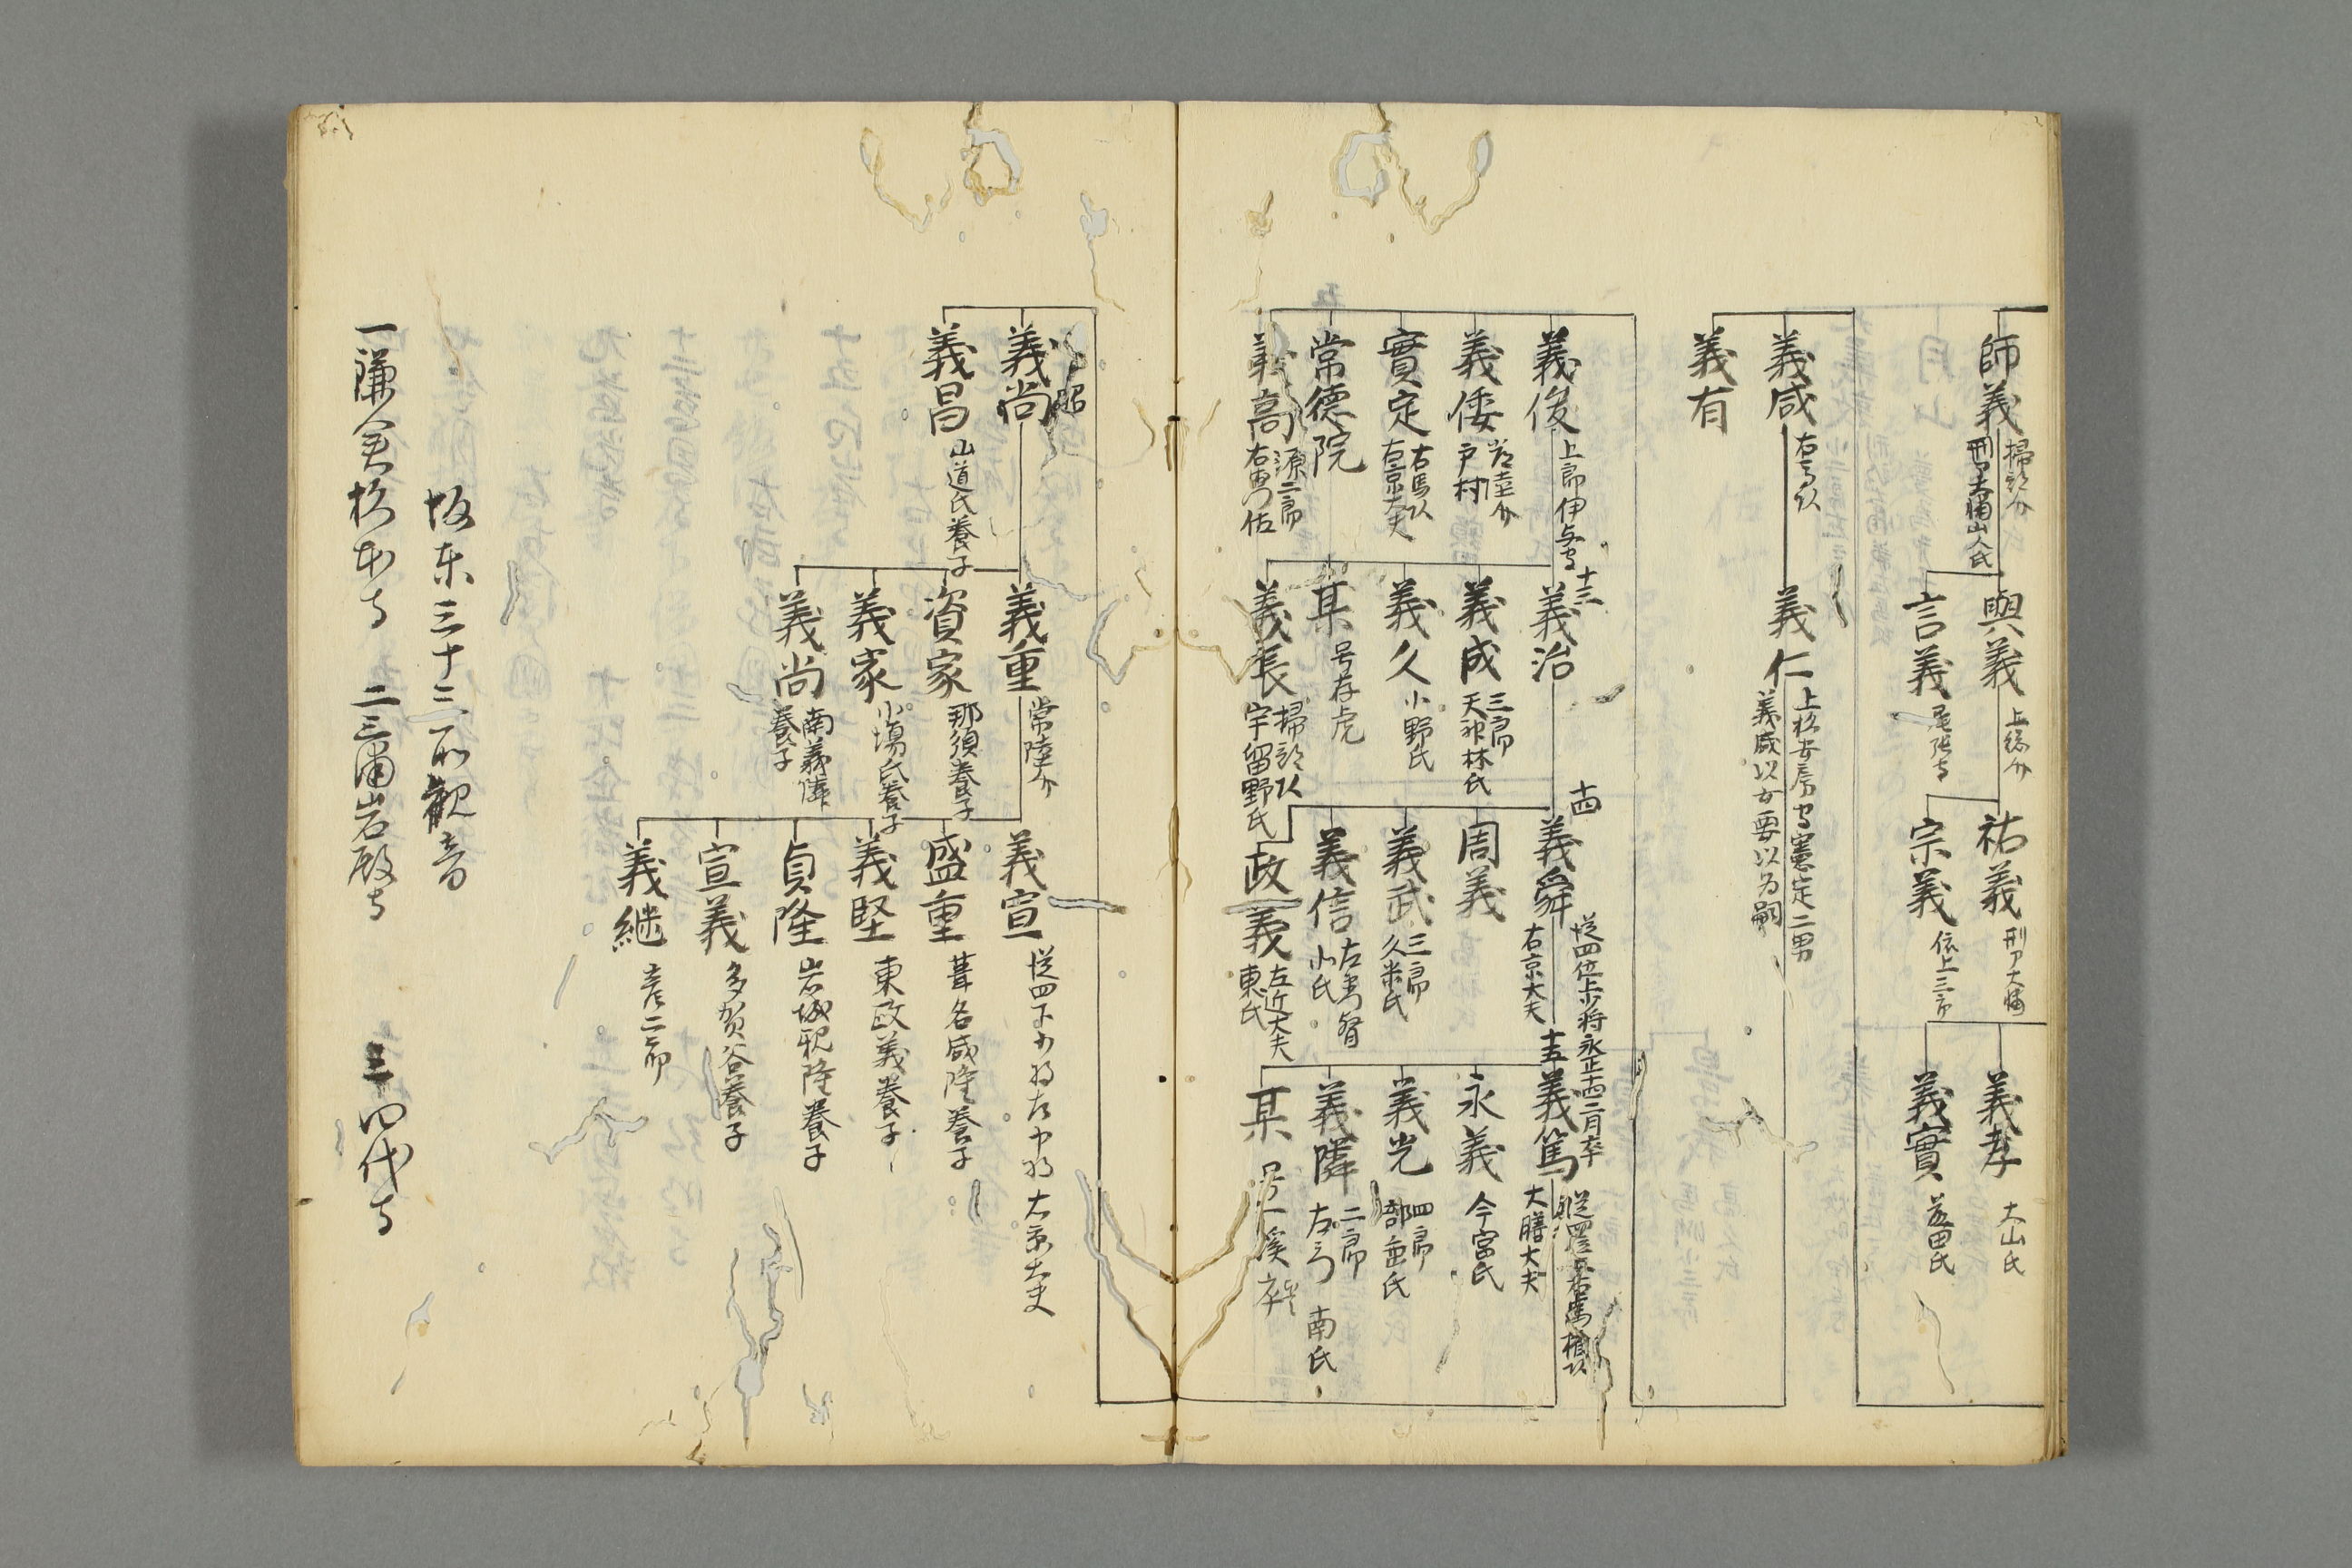 師義
掃部介
刑部大輔山入氏
與義
上総介
言義
尾張守
祐義
刑ア大輔
宗義
依上三郎
義孝
大山氏
義實
義咸
右馬頭
義仁
上杉安房守憲定二男
義咸以女要以为嗣
義有
義俊
上郎伊与守
十三
義治
十四
義舜
従四位上少将永正十四二月卒
右京大夫
十五
義篤
大膳大夫
義倭
常陸介
戸村
義成
三郎
天神林氏
周義
永義
今宮氏
實定
右馬頭
右京大夫
義久
小野氏
義武
三郎
久米氏
義光
四郎
部垂氏
常德院
某
号存虎
義信
小氏
義隣
二郎
左衛門
南氏
義高
源二郎
右衛門佐
義長
掃部頭
宇留野氏
政義
左近大夫
東氏
某
号一溪
昭
義尚
義重
常陸介
義宣
従四下少将左中将右京大夫
義昌
山道氏養子
資家
那須養子
盛重
葦名盛隆養子
義家
小場氏養子
義堅
東政義養子
義尚
南義隣
養子
貞隆
岩城親隆養子
宣義
多賀谷養子
義継
彦二郎
坂东三十三所觀音
一鎌倉杉本寺
二三浦岩殿寺
三田代寺